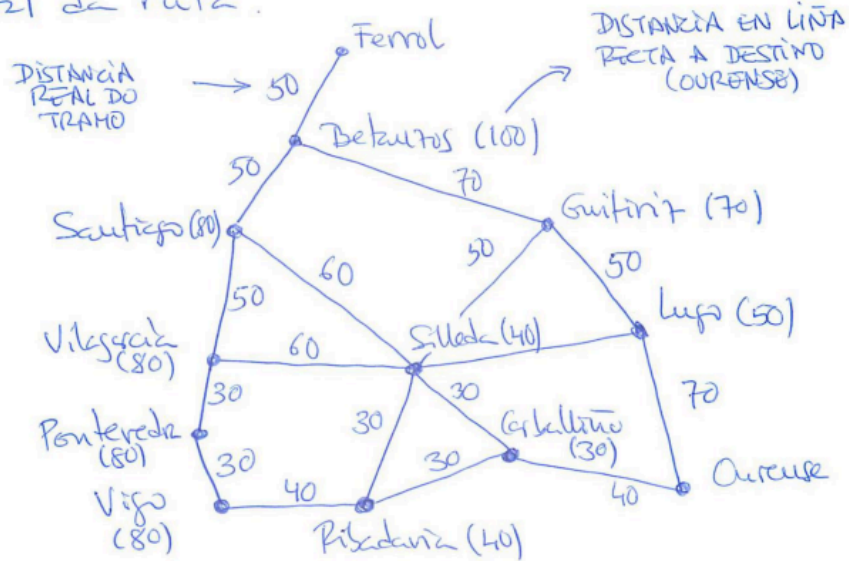 da ruta.
Ferrol
DISTANCIA
REAL DO
TRAMO
50
DISTANZIA EN LIÑA
RECTA A DESTINO
(OURENSE)
Betanzos (100)
50
70
Santiago (80)
Guitiriz (70)
60
50
50
50
Vilagarcía
(80)
60
Silleda (40)
Lugo (50)
30
30
70
Pontevedra
(80)
30
30
Carballiño
(30)
30
Ourense
Vigo
(80)
40
40
Ribadavia (40)